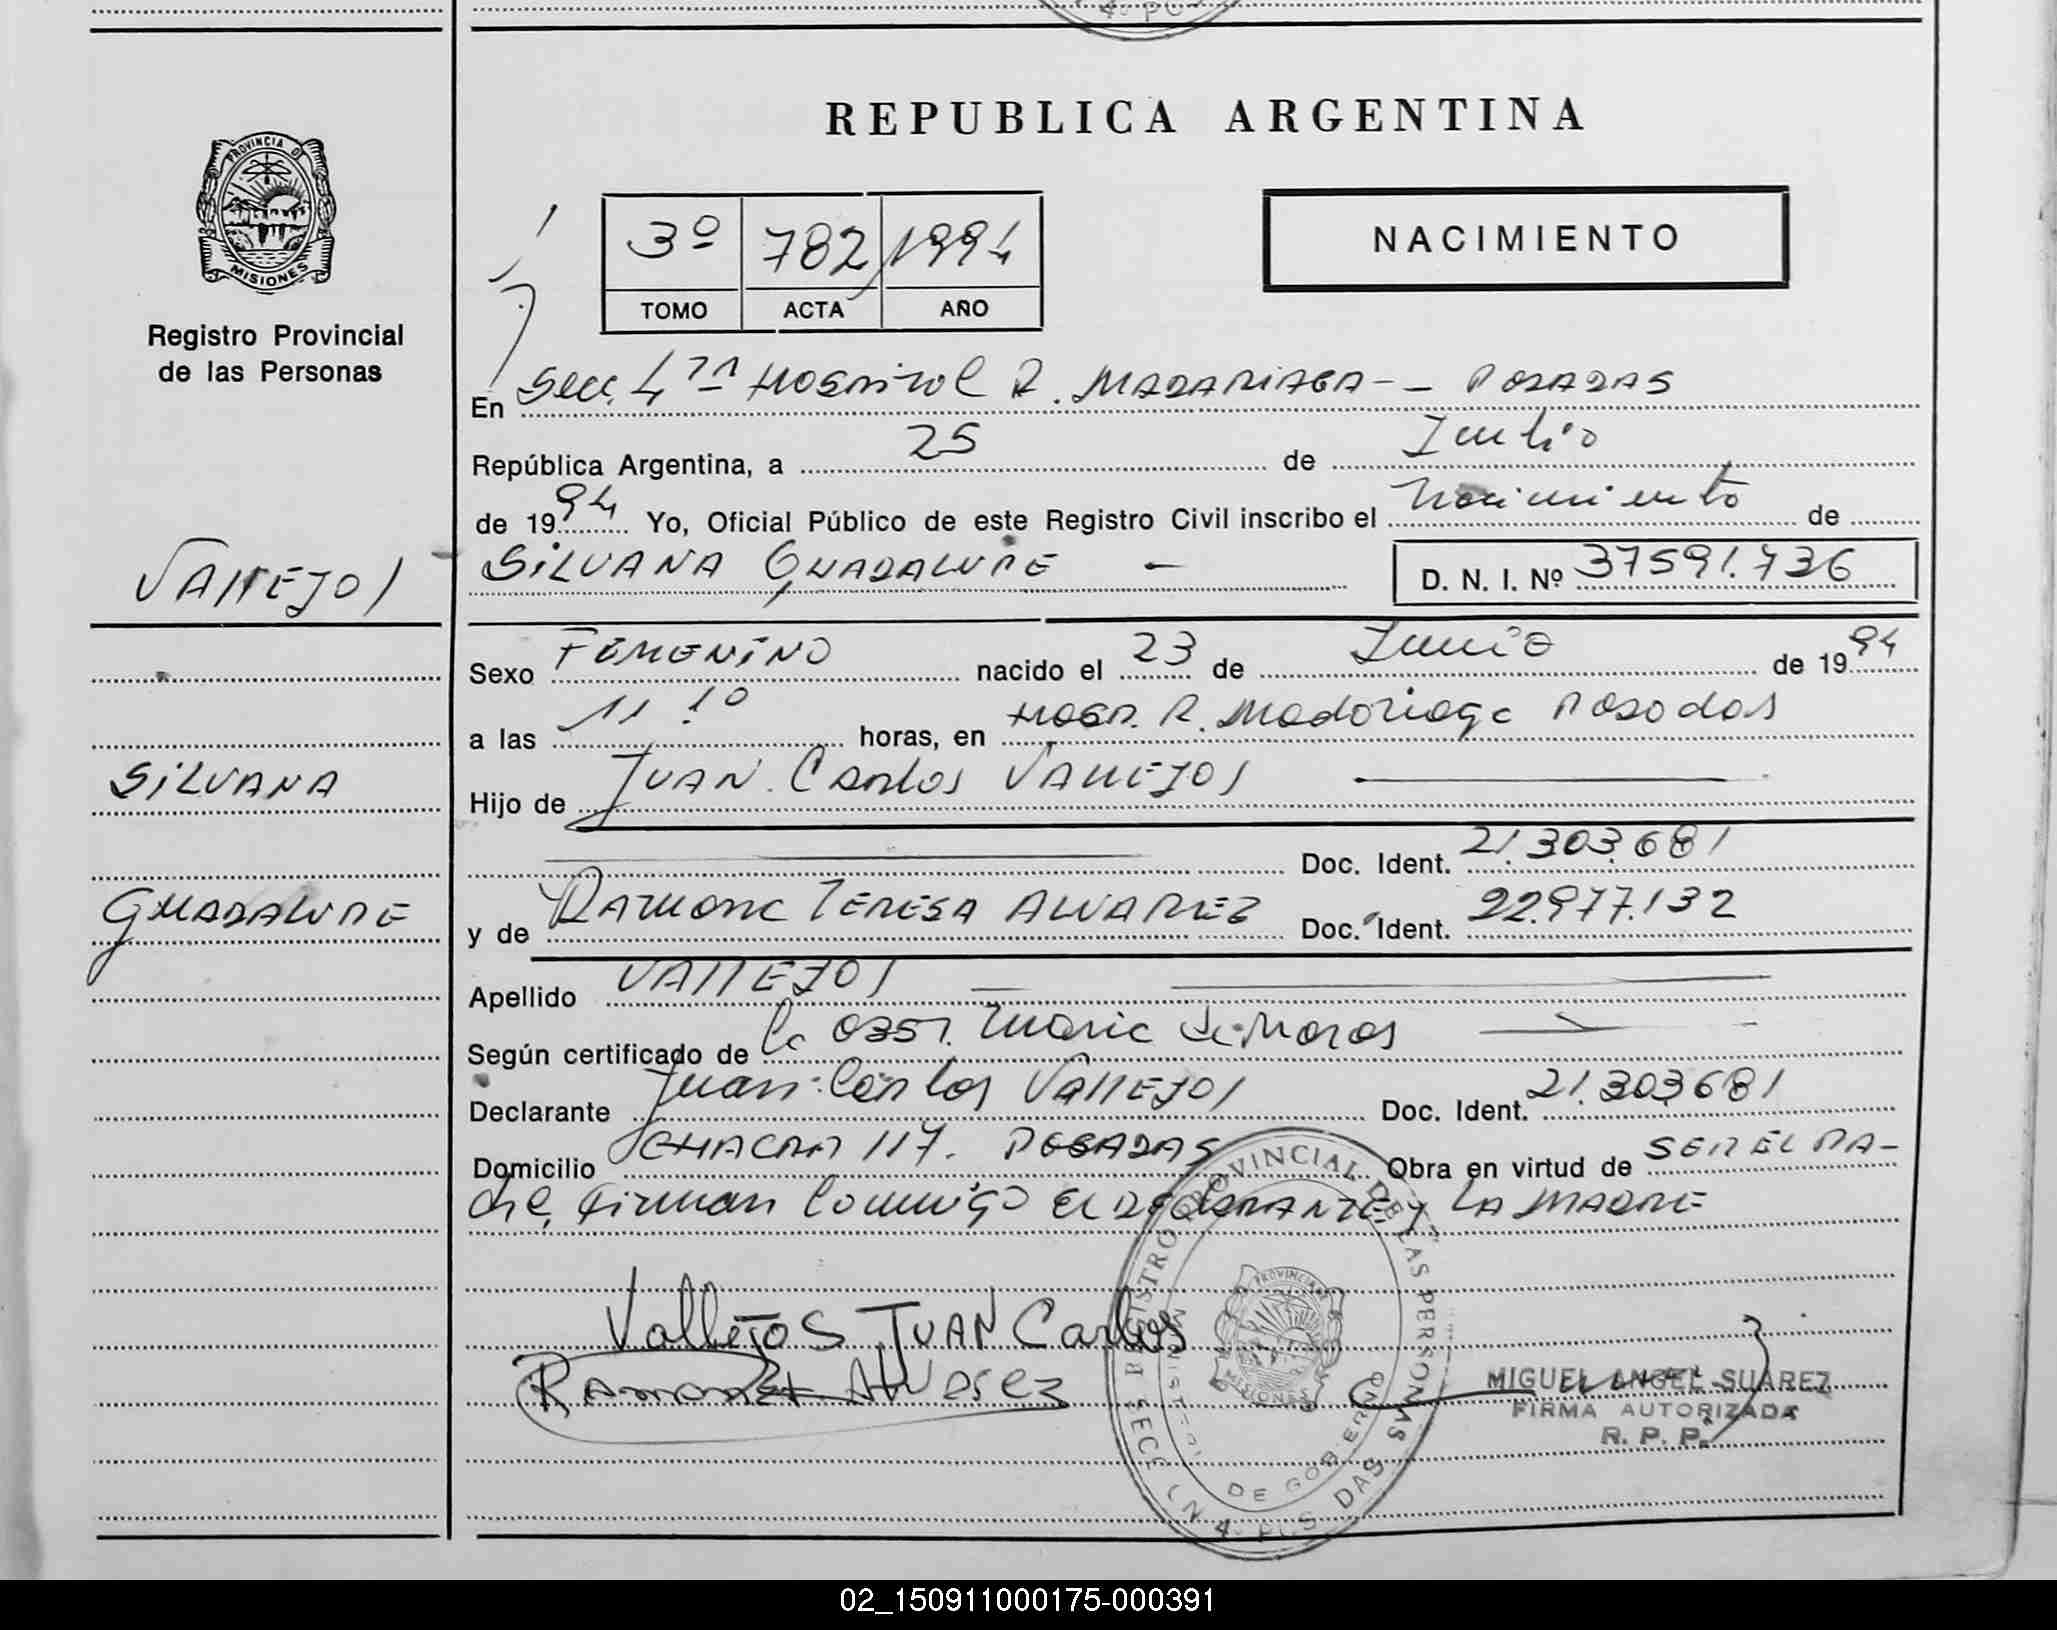 REPUBLICA ARGENTINA
PROVINCIA D
MISIONES
Registro Provincial
de las Personas
3º 782 1994
TOMO ACTA AÑO
NACIMIENTO
En Secc. 4ta Hospital R. MADARIAGA - - POSADAS
República Argentina, a 25 de Julio
de 1994 Yo, Oficial Público de este Registro Civil inscribo el Nacimiento de
SILVANA GUADALUPE - D. N. I. Nº 37591.736
VALLEJOS
Sexo FEMENINO nacido el 23 de Junio de 1994
a las 11 10 horas, en HOSP. R. Madariaga Posadas
Hijo de JUAN Carlos VALLEJOS
SILVANA
Doc. Ident. 21.303.681
y de RAMONA TERESA ALVAREZ Doc. Ident. 22.977.132
GUADALUPE
Apellido VALLEJOS
Según certificado de la OBST. Maria
Declarante Juan Carlos VALLEJOS Doc. Ident. 21.303.681
Domicilio CHACRA 117. POSADAS Obra en virtud de SER EL PA-
dre, Firman Conmigo EL DECLARANTE Y LA MADRE
VallejoS JUAN Carlos
Ramona Alvarez
MIGUEL ANGEL SUAREZ
FIRMA AUTORIZADA
R. P. P.
REGISTRO PROVINCIAL DE LAS PERSONAS
DE GOBIERNO
PROVINCIA
MISIONES
02_150911000175-000391